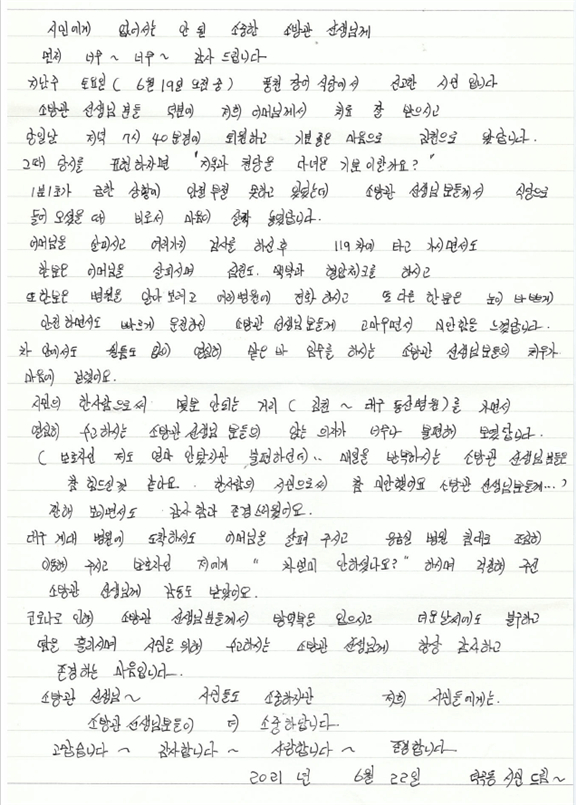 시민에게 없어서는 안 될 소중한 소방관 선생님께
먼저 너무~ 너무~ 감사 드립니다
지난주 토요일( 6월 19일 오전 중 ) 풍원 장어 식당에서 신고한 시민 입니다
소방관 선생님 분들 덕분에 저희 어머님께서 치료 잘 받으시고
당일날 저녁 7시 40분경에 퇴원하고 기분 좋은 마음으로 김천으로 왔습니다.
그때 당시를 표현하자면 "지옥과 천당을 다녀온 기분 이랄까요?"
1분1초가 급한 상황에 안절부절 못하고 있었는데 소방관 선생님 분들께서 식당으로
들어 오셨을 때 비로서 마음이 살짝 놓였답니다.
어머님을 살피시고 여러가지 검사를 하신 후 119 차에 타고 가시면서도
한분은 어머님을 살피시며 심전도. 맥박과 혈압체크를 하시고
또 한분은 병원을 알아 보려고 여러병원에 전화 하시고 또 다른 한분은 높이 바쁘게
안전 하면서도 빠르게 운전하신 소방관 선생님분들께 고마우면서 미안함을 느꼈답니다.
차 안에서도 쉴틈도 없이 열심히 맡은 바 임무를 하시는 소방관 선생님분들의 처우가
마음에 걸렸어요.
시민의 한사람으로써 몇분 안되는 거리( 김천 ~ 대구 동산병원)를 가면서
열심히 수고하시는 소방관 선생님 분들의 앉는 의자가 너무나 불편해 보였답니다.
( 보호자인 저도 얼마 안탔지만 불편하던데.. 매일을 반복하시는 소방관 선생님분들은
참 힘드실것 같아요. 한사람의 시민으로써 참 미안했어요 소방관 선생님분들께...)
관해 보이면서도 감사함과 존경스러웠어요.
대구 계대 병원에 도착하셔도 어머님을 살펴 주시고 응급실 병원 침대로 조심히
이동해 주시고 보호자인 저에게 "차멀미 안하셨나요?" 하시며 걱정해 주신
소방관 선생님께 감동도 받았어요.
코로나로 인해 소방관 선생님분들께서 방역복을 입으시고 더운날씨에도 불구하고
땀을 흘리시며 시민을 위해 수고하시는 소방관 선생님께 항상 감사하고
존경하는 마음입니다.
소방관 선생님~ 시민들도 소중하지만 저희 시민들에게는.
소방관 선생님분들이 더 소중하답니다.
고맙습니다 ~ 감사합니다 ~ 사랑합니다 ~ 존경합니다.
2021 년 6월 22일 덕곡동 시민 드림~